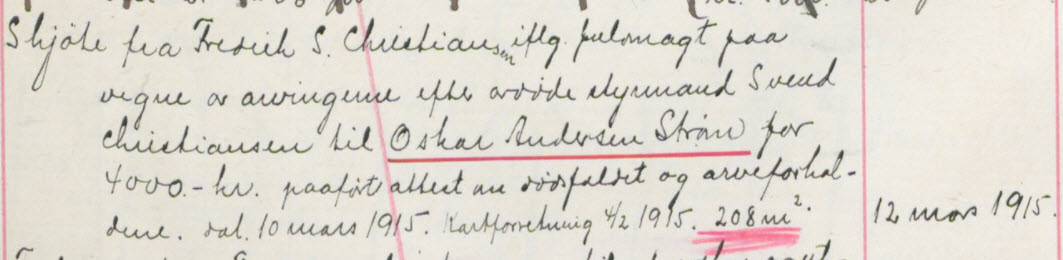 Skjöte fra Fredrik S. Christiansen iflg. fulmagt paa
vegne av arvingerne efter avdöde styrmand Svend
Christiansen til Oskar Andersen Strøm for
4000.- kr. paaført attest om dödsfaldet og arveforhol-
dene. dat. 10 mars 1915. Kartforretning 4/2 1915. 208 m². 12 mars 1915.